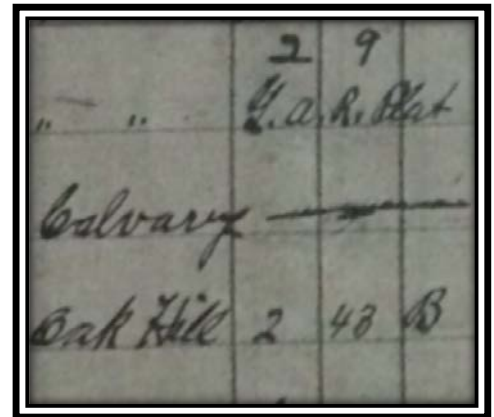 2 9
" " G.A.R. Plat
Calvary —
Oak Hill 2 43 B